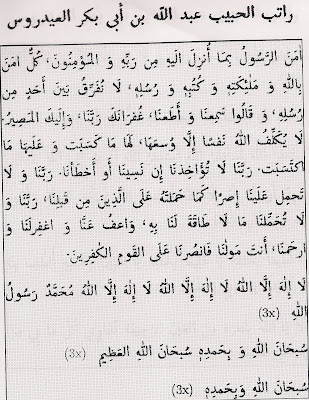 راتب الحبيب عبد الله بن أبى بكر العيدروس
اٰمَنَ الرَّسُولُ بِمَا أُنزِلَ اِلَيهِ مِن رَبِّهِ وَ المُؤمِنُونَ، كُلُّ اٰمَنَ
بِاللهِ وَ مَلٰئِكَتِهِ وَ كُتُبِهِ وَ رُسُلِهِ، لَا نُفَرِّقُ بَيْنَ اَحَدٍ مِن
رُسُلِهِ، وَ قَالُوا سَمِعنَا وَ أَطَعنَا، غُفرَانَكَ رَبَّنَا، وَإِلَيكَ المَصِيرُ.
لَا يُكَلِّفُ اللهُ نَفسًا إِلَّا وُسعَهَا، لَهَا مَا كَسَبَت وَ عَلَيهَا مَا
اكتَسَبَت. رَبَّنَا لَا تُؤَاخِذنَا إِن نَسِينَا أَو أَخطَأنَا. رَبَّنَا وَ لَا
تَحمِل عَلَينَا إِصرًا كَمَا حَمَلتَهُ عَلَى الَّذِينَ مِن قَبلِنَا، رَبَّنَا وَ
لَا تُحَمِّلنَا مَا لَا طَاقَةَ لَنَا بِهِ، وَاعفُ عَنَّا وَ اغفِرلَنَا وَ
ارحَمنَا، أَنتَ مَولٰنَا فَانصُرنَا عَلَى القَومِ الكٰفِرِينَ.
لَا إِلٰهَ إِلَّا اللهُ لَا إِلٰهَ إِلَّا اللهُ لَا إِلٰهَ إِلَّا اللهُ مُحَمَّدٌ رَسُولُ
اللهِ (3x)
سُبحَانَ اللهِ وَ بِحَمدِهِ سُبحَانَ اللهِ العَظِيمِ (3x)
سُبحَانَ اللهِ وَبِحَمدِهِ (3x)